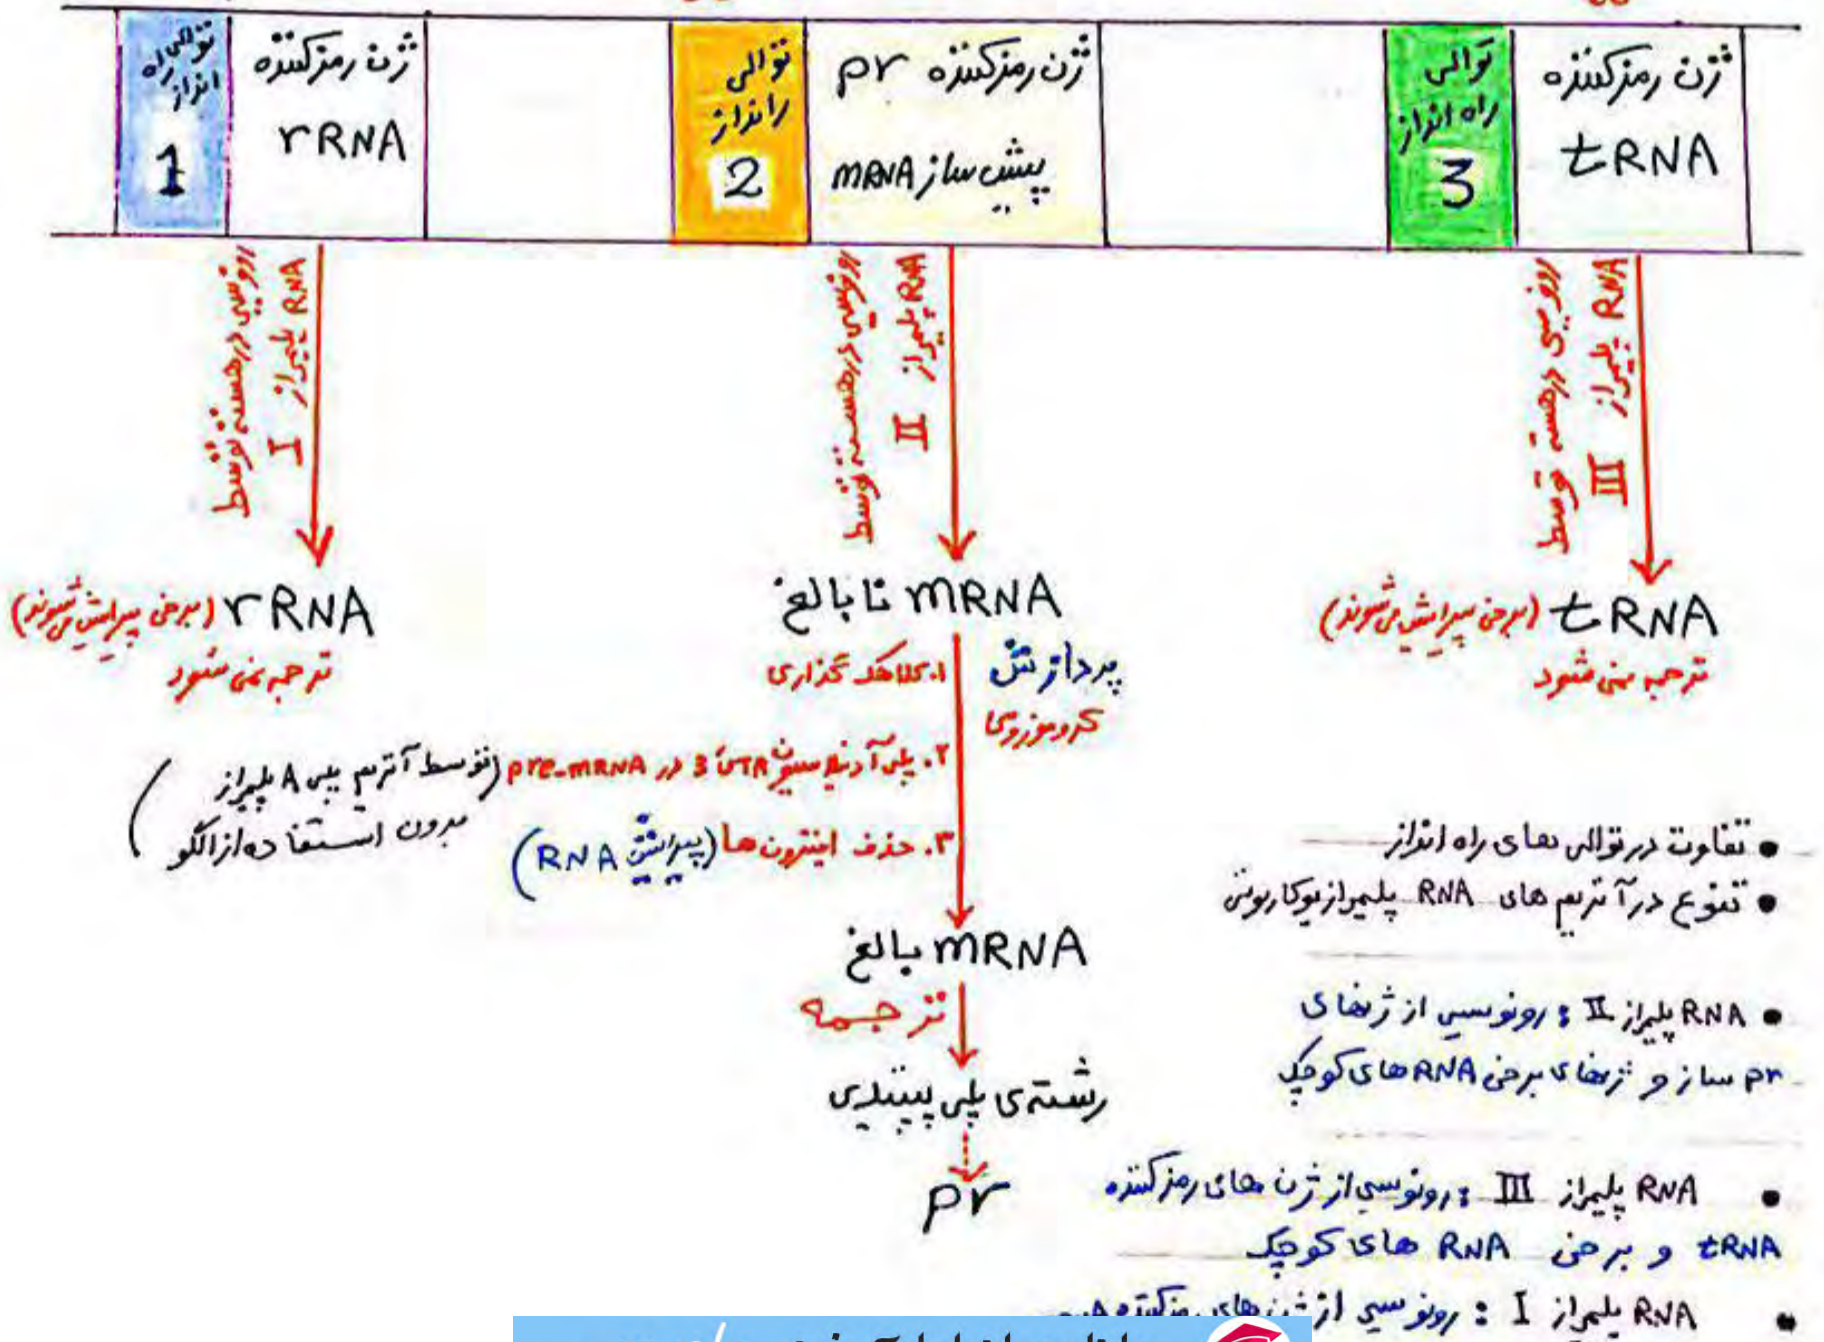 توالی راه انداز
1
ژن رمز کننده
rRNA
توالی
راه انداز
2
ژن رمز کننده pr
پیش ساز mRNA
توالی
راه انداز
3
ژن رمز کننده
tRNA
رونویسی در هسته توسط
RNA پلیمراز I
رونویسی در هسته توسط
RNA پلیمراز II
رونویسی در هسته توسط
RNA پلیمراز III
rRNA (برخی پیرایش می شوند)
ترجمه نمی شود
mRNA نابالغ
tRNA (برخی پیرایش می شوند)
ترجمه نمی شود
پردازش
۱. کلاهک گذاری
۲. پلی آدنیلاسیون 3 UTR در pre-mRNA (توسط آنزیم پلی A پلیمراز
بدون استفاده از الگو)
۳. حذف اینترون ها (پیرایش RNA)
mRNA بالغ
ترجمه
رشته ی پلی پپتیدی
pr
• تفاوت در توالی های راه انداز
• تنوع در آنزیم های RNA پلیمراز یوکاریوتی
• RNA پلیمراز II : رونویسی از ژنهای
pr ساز و ژنهای برخی RNA های کوچک
• RNA پلیمراز III : رونویسی از ژن های رمز کننده
tRNA و برخی RNA های کوچک
• RNA پلیمراز I : رونویسی از ژن های رمز کننده